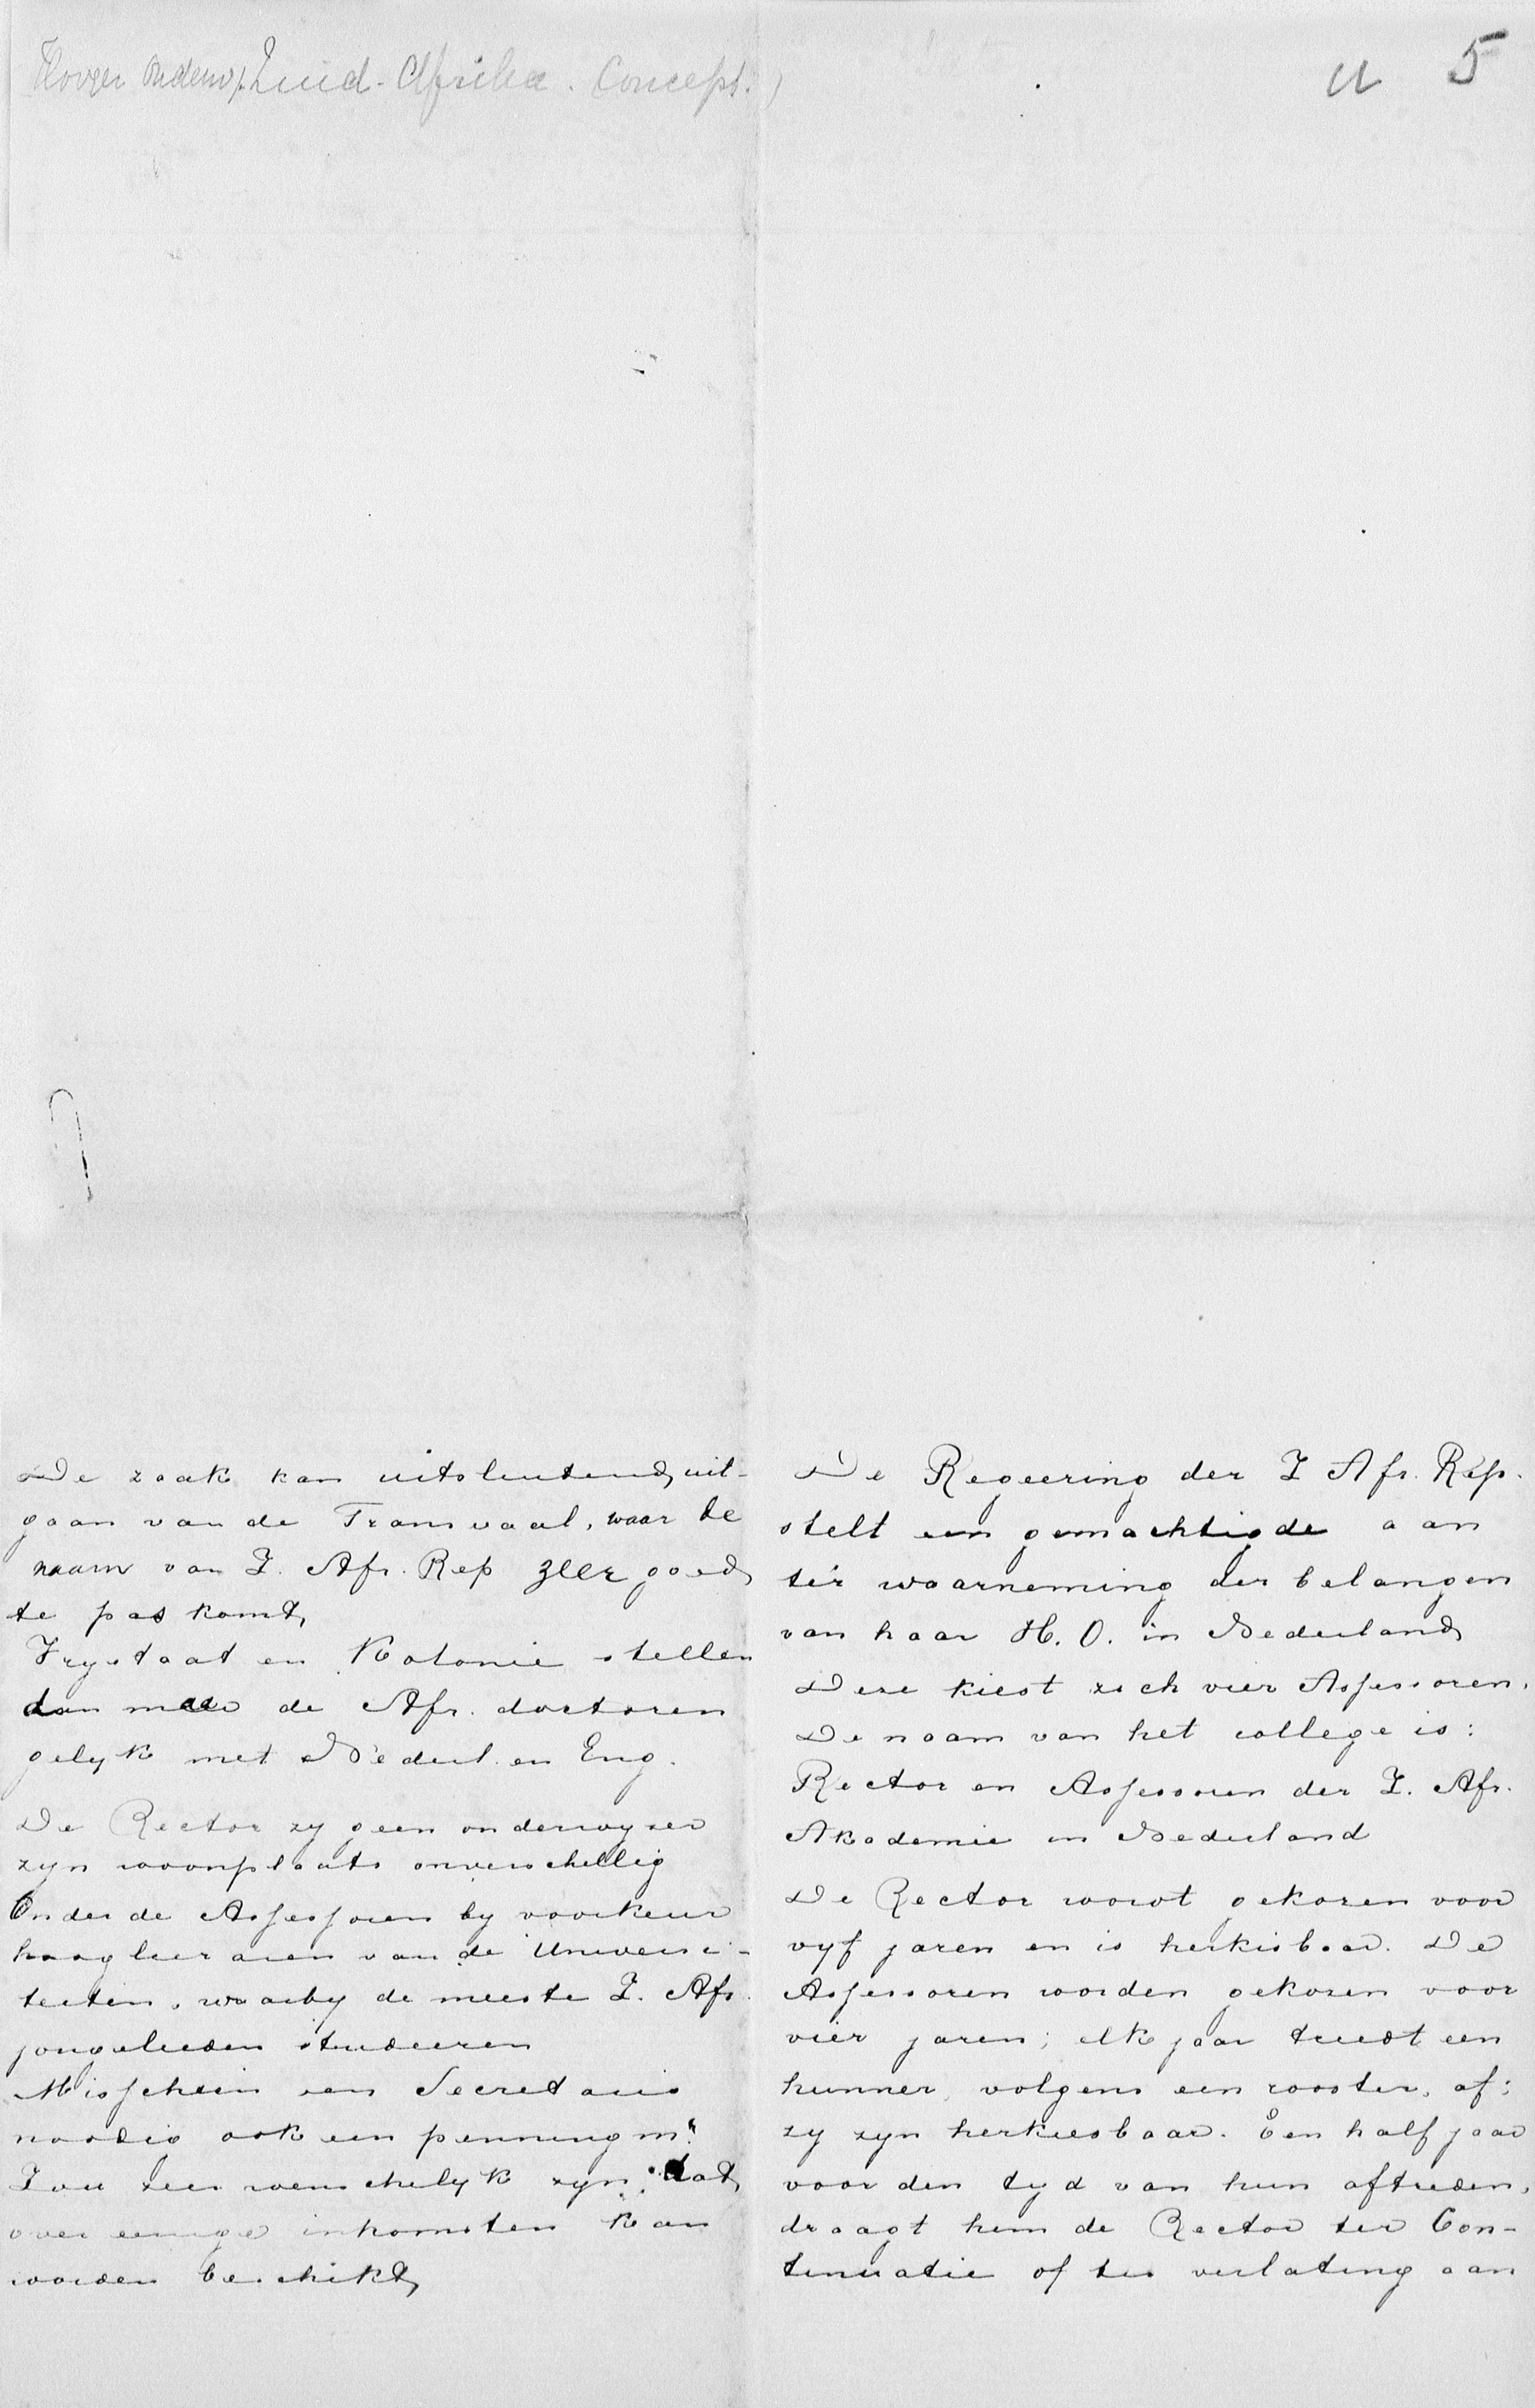 Hooger Onderw. Zuid-Afrika. Concept.
5
De zaak kan uitsluitend uit-
gaan van de Transvaal, waar de
naam van Z. Afr. Rep zeer goed
te pas komt,
Vrystaat en Kolonie stellen
dan mede de Afr. doctoren
gelyk met Nederl. en Eng.
De Rector zy geen onderwyzer
zyn woonplaats onverschellig
Onder de Assessoren by voorkeur
hoogleeraren van de Universi-
teiten, waarby de meeste Z. Afr.
jongelieden studeeren
Misschien een Secretaris
noodig ook een penningmr.
Zou zeer wenschelyk zyn dat
over eenige inkomsten kan
worden beschikt,
De Regeering der Z Afr. Rep.
stelt een gemachtigde aan
ter waarneming der belangen
van haar H. O. in Nederland,
Deze kiest zich vier Assessoren.
De naam van het college is:
Rector en Assessoren der Z. Afr.
Akademie in Nederland
De Rector wordt gekozen voor
vyf jaren en is herkiesbaar. De
Assessoren worden gekozen voor
vier jaren; elk jaar treedt een
hunner, volgens een rooster, af;
zy zyn herkiesbaar. Een half jaar
voor den tyd van hun aftreden,
draagt hem de Rector ter Con-
tinuatie of ter verlating aan